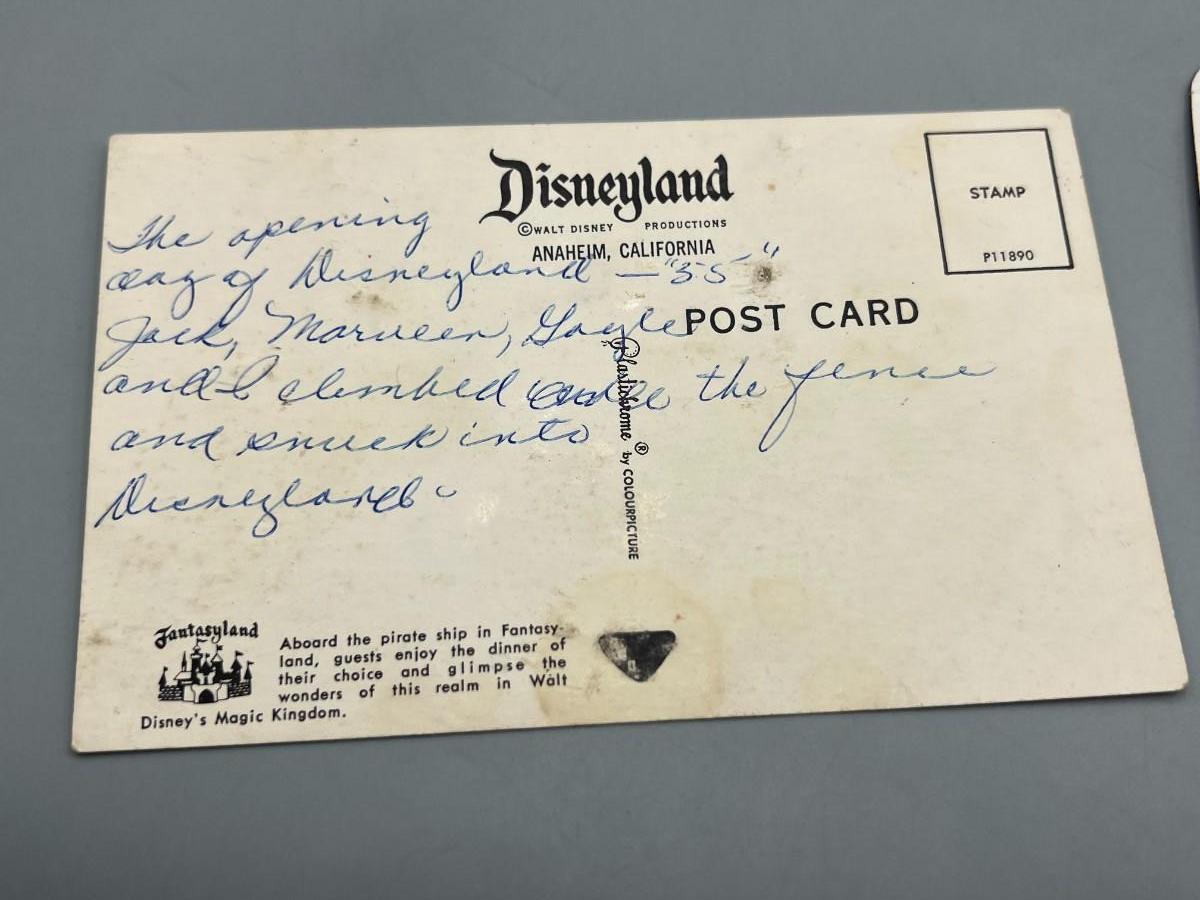 Disneyland
©WALT DISNEY PRODUCTIONS
ANAHEIM, CALIFORNIA
STAMP
P11890
POST CARD
The opening
day of Disneyland — "55"
Jack, Marveen, Gayle
and I climbed the fence
and snuck into
Disneyland.
Plastichrome ® by COLOURPICTURE
Fantasyland
Aboard the pirate ship in Fantasy-
land, guests enjoy the dinner of
their choice and glimpse the
wonders of this realm in Walt
Disney's Magic Kingdom.